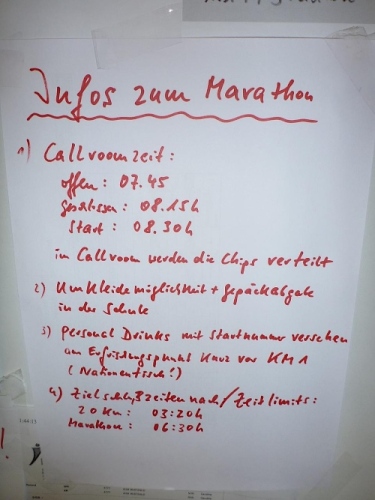 Infos zum Marathon
1) Callroomzeit:
offen: 07.45
geschlossen: 08.15h
Start: 08.30h
im Callroom werden die Chips verteilt
2) Umkleidemöglichkeit + Gepäckabgabe
in der Schule
3) Personal Drinks mit Startnummer versehen
am Erfrischungspunkt kurz vor KM1
(Nationentisch!)
4) Zielschlußzeiten nach/Zeitlimits:
20 Km: 03:20h
Marathon: 06:30h